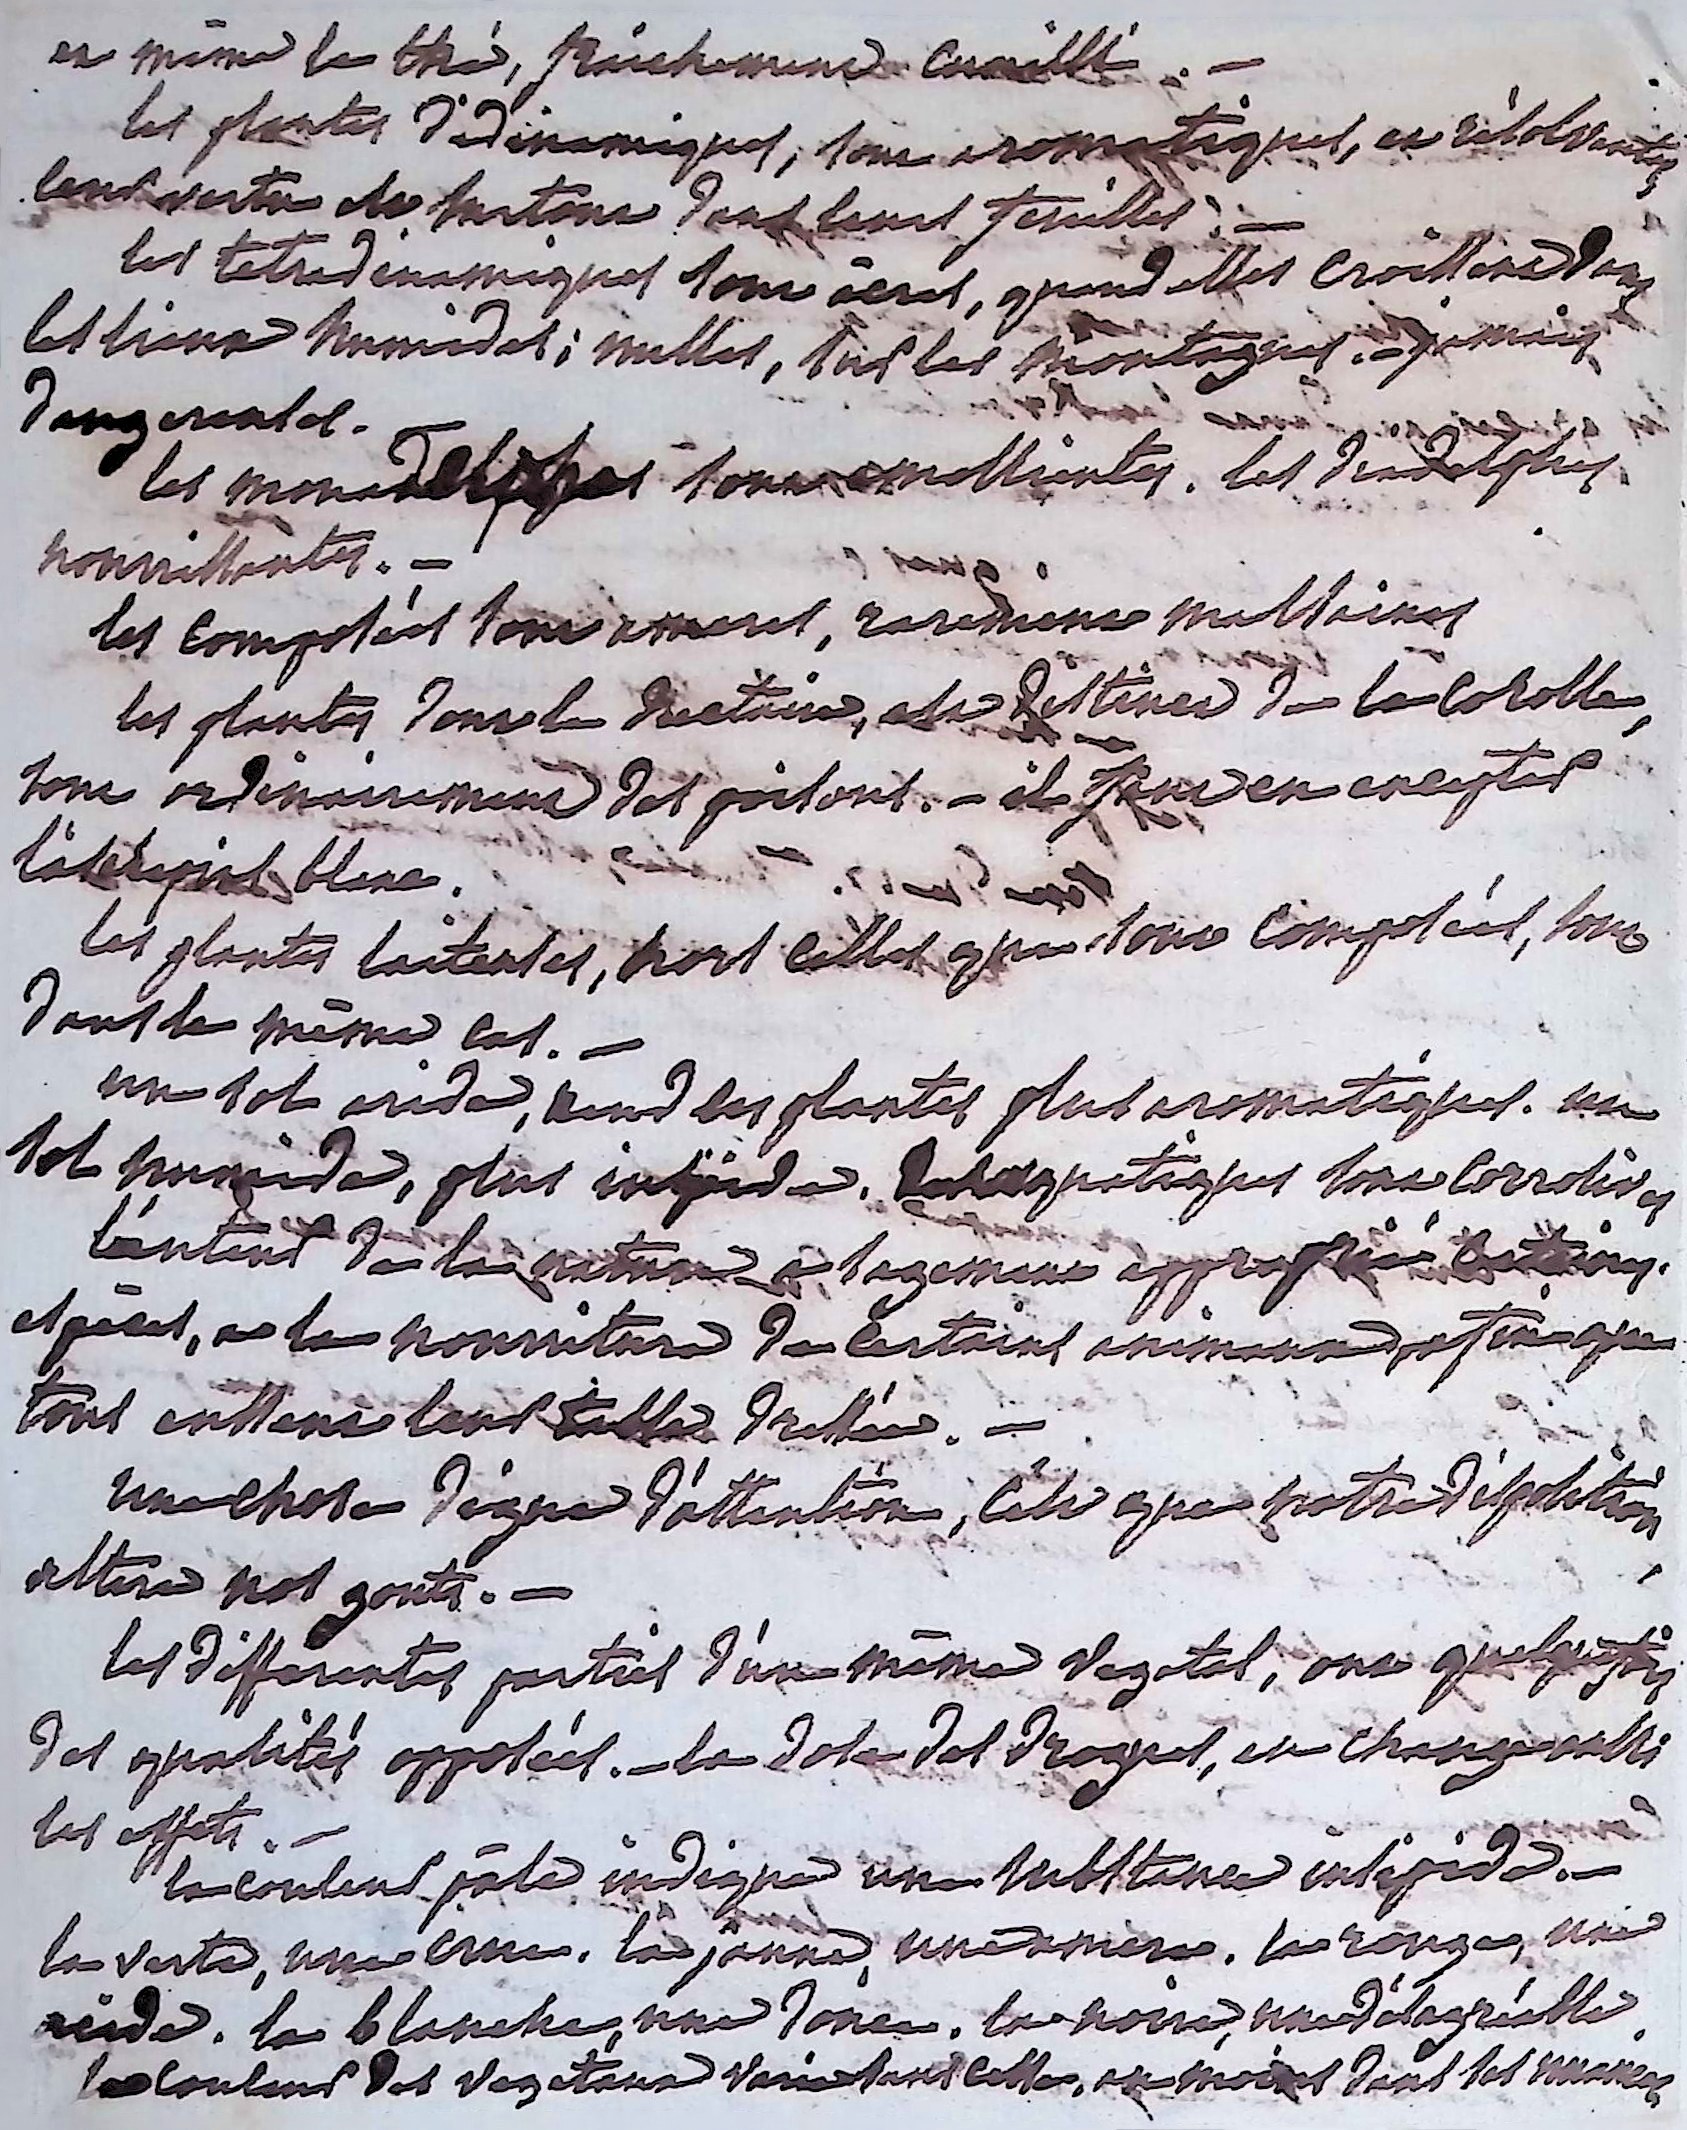 et même le thé, fraichement cueilli. —
les plantes didinamiques, sont aromatiques, et résolventes
leur vertu est surtout dans leurs feuilles. —
les tetradinamiques sont acres, quand elles croissent dans
les lieux humides; nulles, sur les montagnes. – jamais
dangereuses. —
les monadelphes sont emollientes. les diadelphes
nourrissantes. —
les composées sont ameres, rarement malsaines
les plantes dont le nectaire, est distinct de la corolle,
sont ordinairement des poisons. – il faut en excepter
l'asclepias blanc.
les plantes laiteuses, hors celles que sont composées, sont
dans le même cas. —
un sol aride, rend les plantes plus aromatiques. un
sol humide, plus insipide. les aquatiques sont corrosives
l'auteur de la nature a sagement approprié certaines
espèces, a la nourriture de certains animaux, afin que
tous eussent leur table dressée. —
une chose digne d'attention, c'est que notre disposition
altere nos gouts. —
les differentes parties d'un même vegetal, ont quelquefois
des qualités opposées. – la dose des drogues, en change aussi
les effets. —
la couleur pâle indique une substance insipide. —
la verte, une crue. la jaune, une amere. la rouge, une
acide. la blanche, une douce. la noire, une désagréable.
la couleur des vegetaux varie sans cesse, au moins dans ses nuances